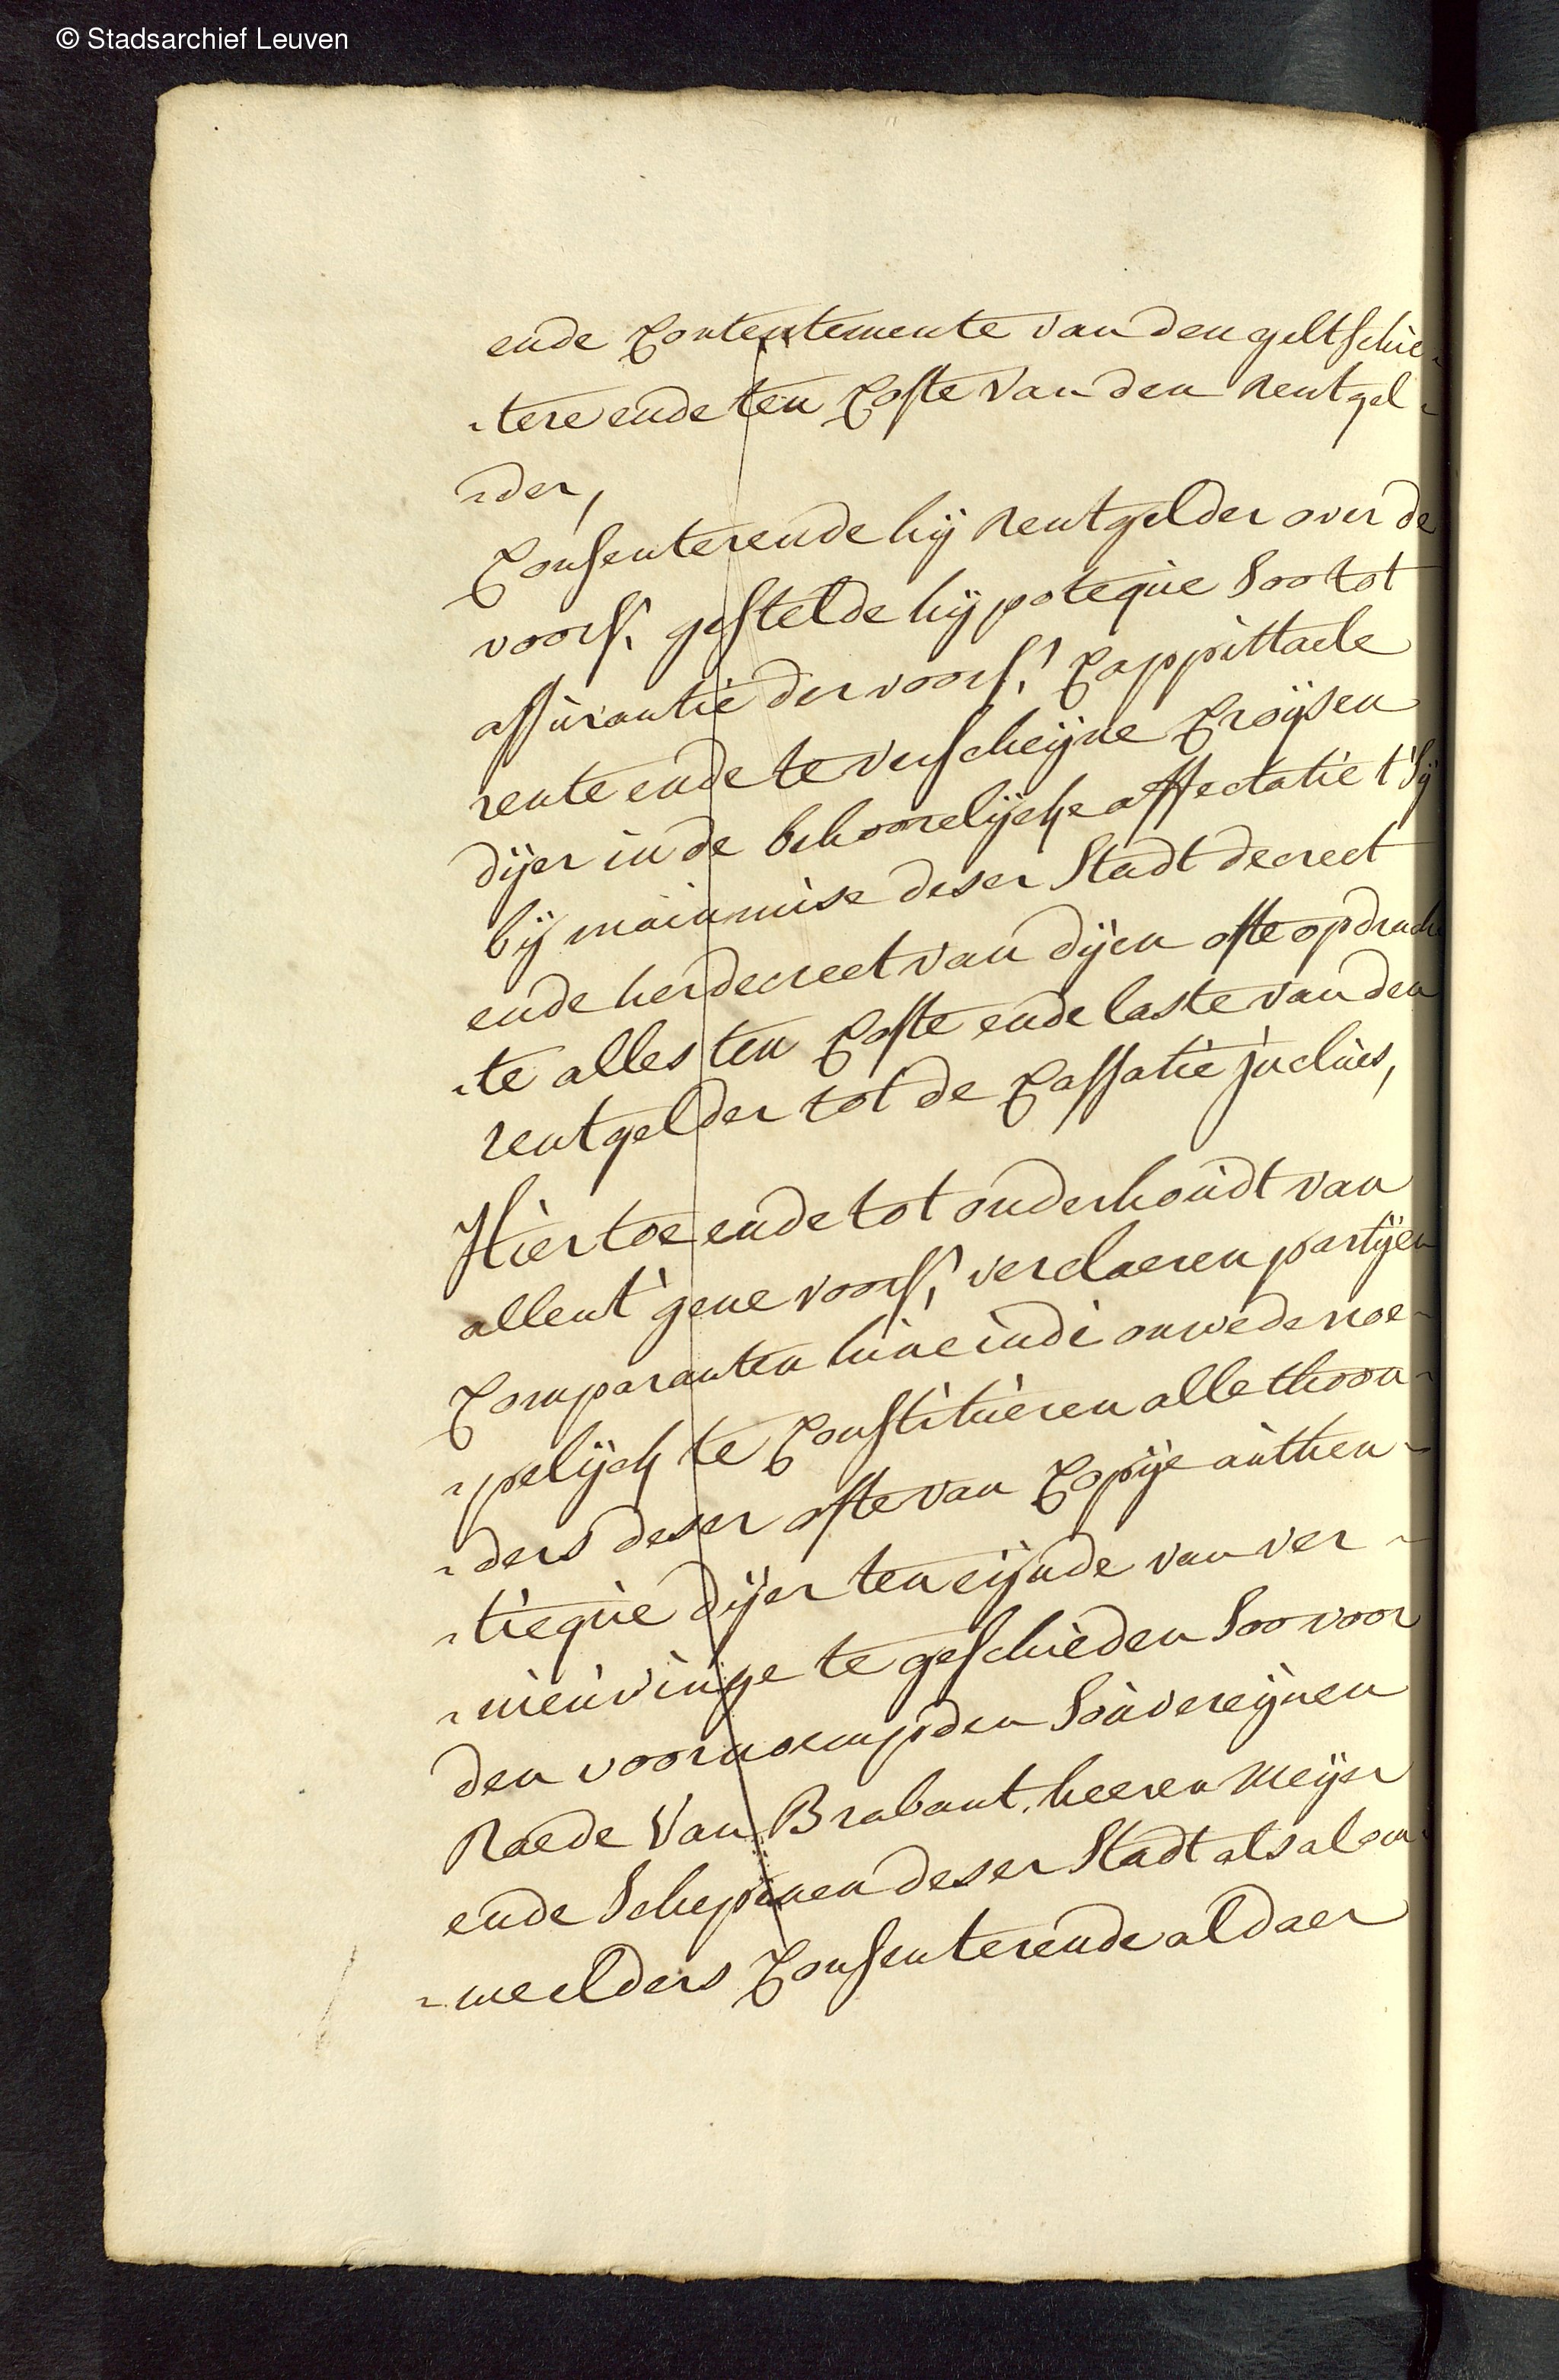 © Stadsarchief Leuven
ende Contentemente van den geltschie-
-tere ende ten Coste van den rentgel-
-der,
Consenterende hij rentgelder over de
voors. gestelde hijpoteque soo tot
assurantie der voors. Cappittaele
rente ende te verscheijne Croijsen
dijer in de behoorelijcke affectatie t'sij
bij mainmise deser Stadt decreet
ende herdecreet van dijen ofte opdrach-
-te alles ten Coste ende laste van den
rentgelder tot de Cassatie inclues,
Hier toe ende tot onderhoudt van
allent gene voors. verclaeren partijen
Comparanten hinc inde onwederroe-
-pelijck te Constitueren alle thoon-
-ders deser ofte van Copije authen-
-tieque dijer ten eijnde van ver-
-nieuvinge te geschieden soo voor
den voornoempden souvereijnen
Raede van Brabant, heeren Meijer
ende Schepenen deser Stadt als alom-
-meelders Consenterende aldaer